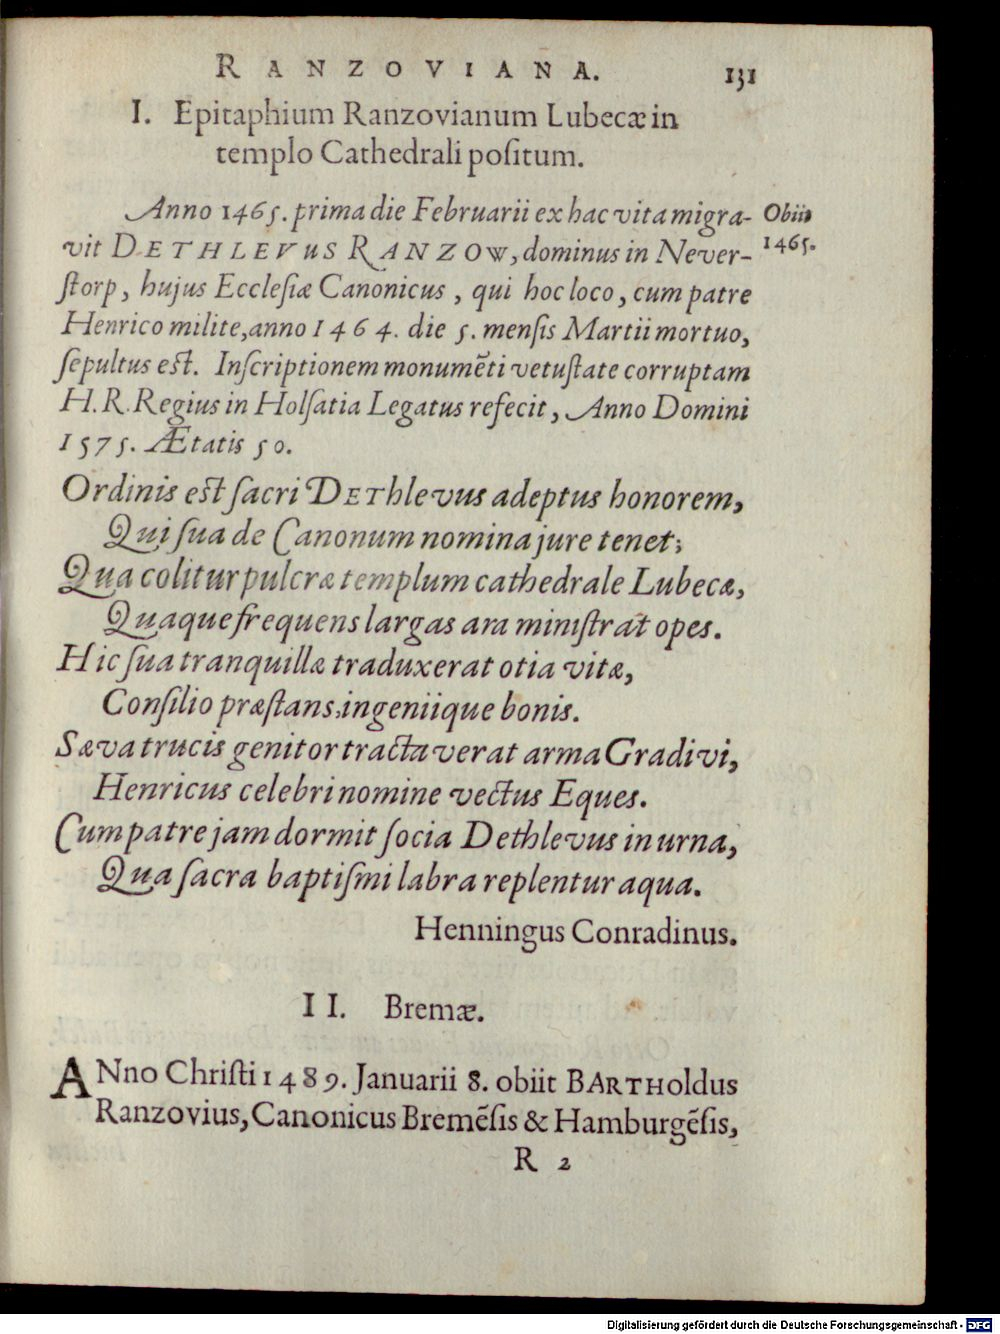 RANZOVIANA. 131
I. Epitaphium Ranzovianum Lubecæ in
templo Cathedrali poſitum.
Anno 1465. prima die Februarii ex hac vita migra-
vit DETHLEVUS RANZOW, dominus in Never-
ſtorp, hujus Eccleſiæ Canonicus, qui hoc loco, cum patre
Henrico milite, anno 1464. die 5. menſis Martii mortuo,
ſepultus eſt. Inſcriptionem monumẽti vetuſtate corruptam
H. R. Regius in Holſatia Legatus refecit, Anno Domini
1575. Ætatis 50.
Obiit
1465.
Ordinis eſt ſacri DEThlevus adeptus honorem,
Qui ſua de Canonum nomina jure tenet;
Qua colitur pulcræ templum cathedrale Lubecæ,
Quaque frequens largas ara miniſtrat opes.
Hic ſua tranquillæ traduxerat otia vitæ,
Conſilio præſtans, ingeniique bonis.
Sæva trucis genitor tractaverat arma Gradivi,
Henricus celebri nomine vectus Eques.
Cum patre jam dormit ſocia Dethlevus in urna,
Qua ſacra baptiſmi labra replentur aqua.
Henningus Conradinus.
II. Bremæ.
ANno Chriſti 1489. Januarii 8. obiit BARTHoldus
Ranzovius, Canonicus Bremẽſis & Hamburgẽſis,
R 2
Digitalisierung gefördert durch die Deutsche Forschungsgemeinschaft - DFG